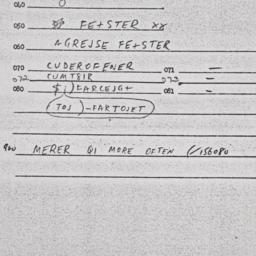 060 0
050 FE+STER xx
060 AGREJSE FE+STER
070 CUDEROFFNER 071 —
072 CUMTSIR 073. —
080 $1) EARCEJG+ 081 —
(TOJ)-FARTOJET
900 MERER Q1 MORE OFTEN